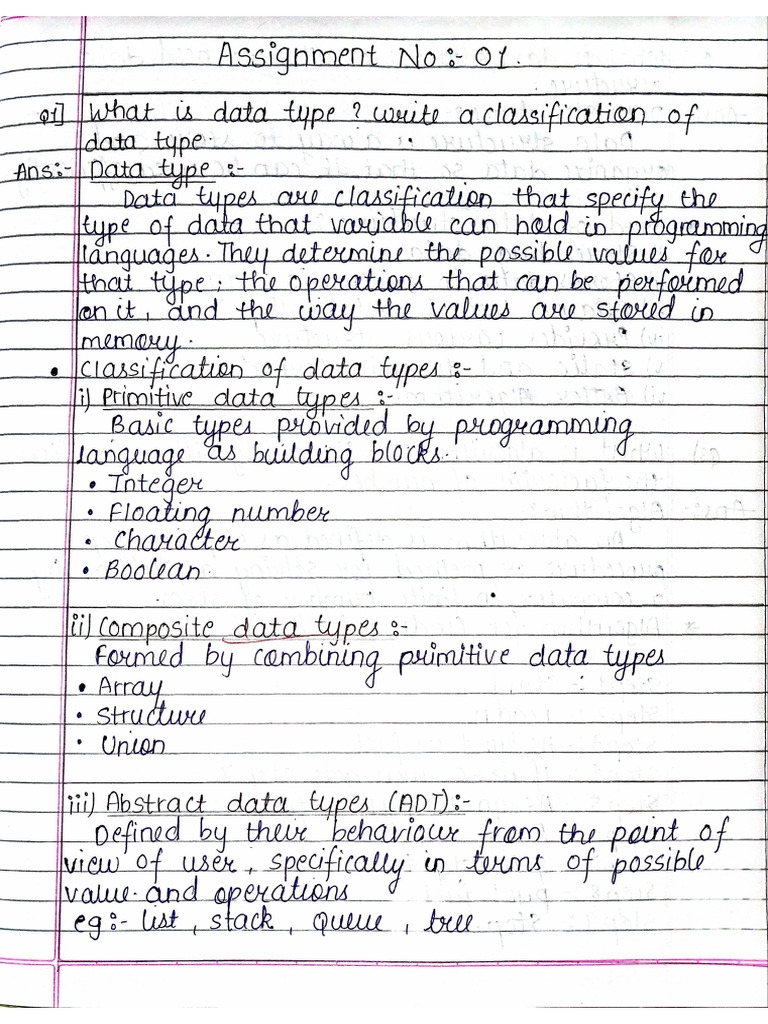 Assignment No:- 01.
Q1] What is data type? write a classification of
data type.
Ans:- Data type :-
Data types are classification that specify the
type of data that variable can hold in programming
languages. They determine the possible values for
that type, the operations that can be performed
on it, and the way the values are stored in
memory.
• Classification of data types :-
i) Primitive data types :-
Basic types provided by programming
language as building blocks.
• Integer
• Floating number
• Character
• Boolean
ii) Composite data types :-
Formed by combining primitive data types
• Array
• Structure
• Union
iii) Abstract data types (ADT):-
Defined by their behaviour from the point of
view of user, specifically in terms of possible
value and operations
eg:- list, stack, queue, tree